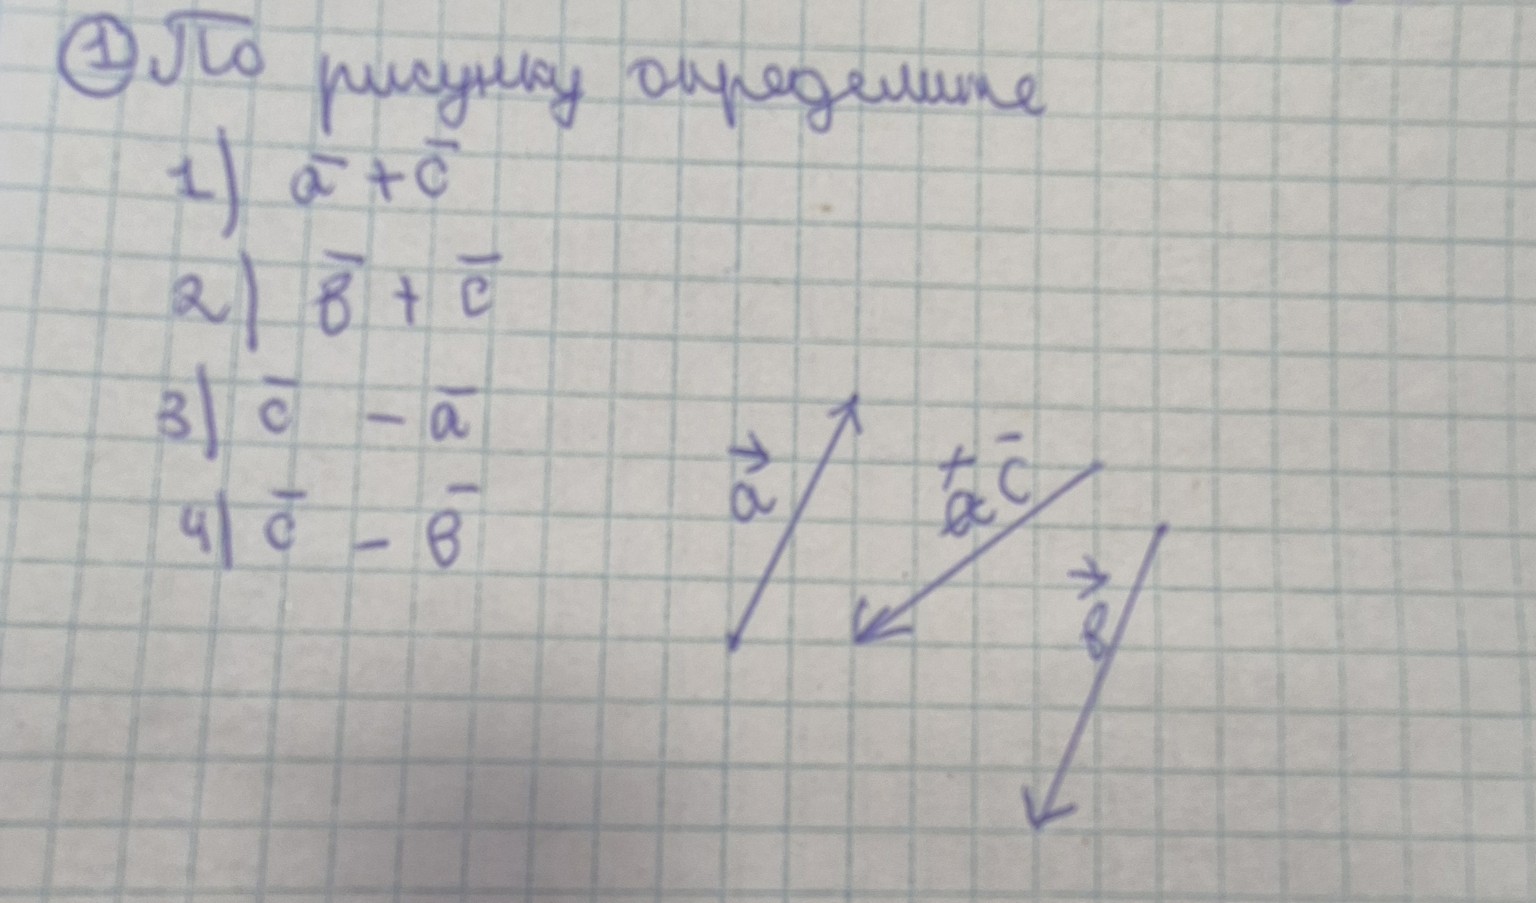 ① По рисунку определите
1) a̅ + c̅
2) в̅ + c̅
3) c̅ - a̅
4) c̅ - в̅
a⃗
c̅
в⃗